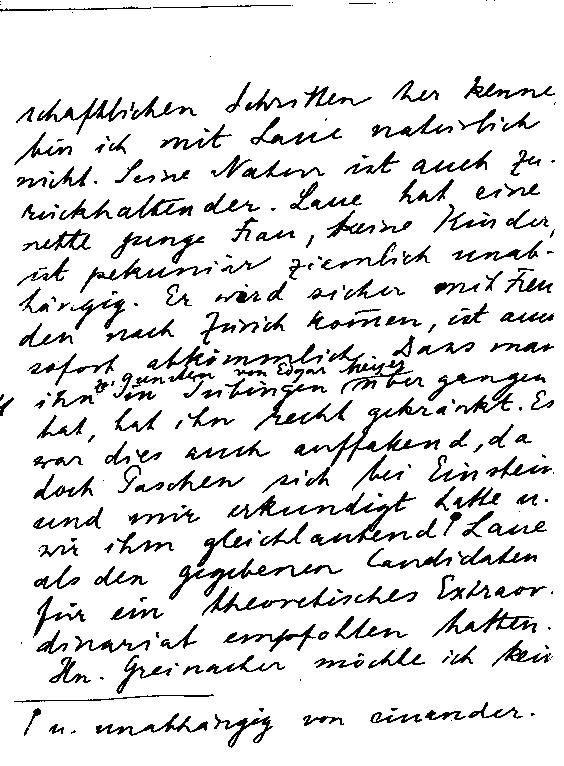 schaftlichen Schriften her kenne,
bin ich mit Laue natürlich
nicht. Seine Natur ist auch zu-
rückhaltender. Laue hat eine
nette junge Frau, keine Kinder,
ist pekuniär ziemlich unab-
hängig. Er wird sicher mit Freu
den nach Zürich kommen, ist auch
sofort abkömmlich. Dass man
zu gunsten von Edgar Meyer
ihn in Tübingen übergangen
hat, hat ihn recht gekränkt. Es
war dies auch auffallend, da
doch Paschen sich bei Einstein
und mir erkundigt hatte u.
wir ihm gleichlautend Laue
als den gegebenen Candidaten
für ein theoretisches Extraor-
dinariat empfohlen hatten.
Hn. Greinacher möchte ich kein
u. unabhängig von einander.